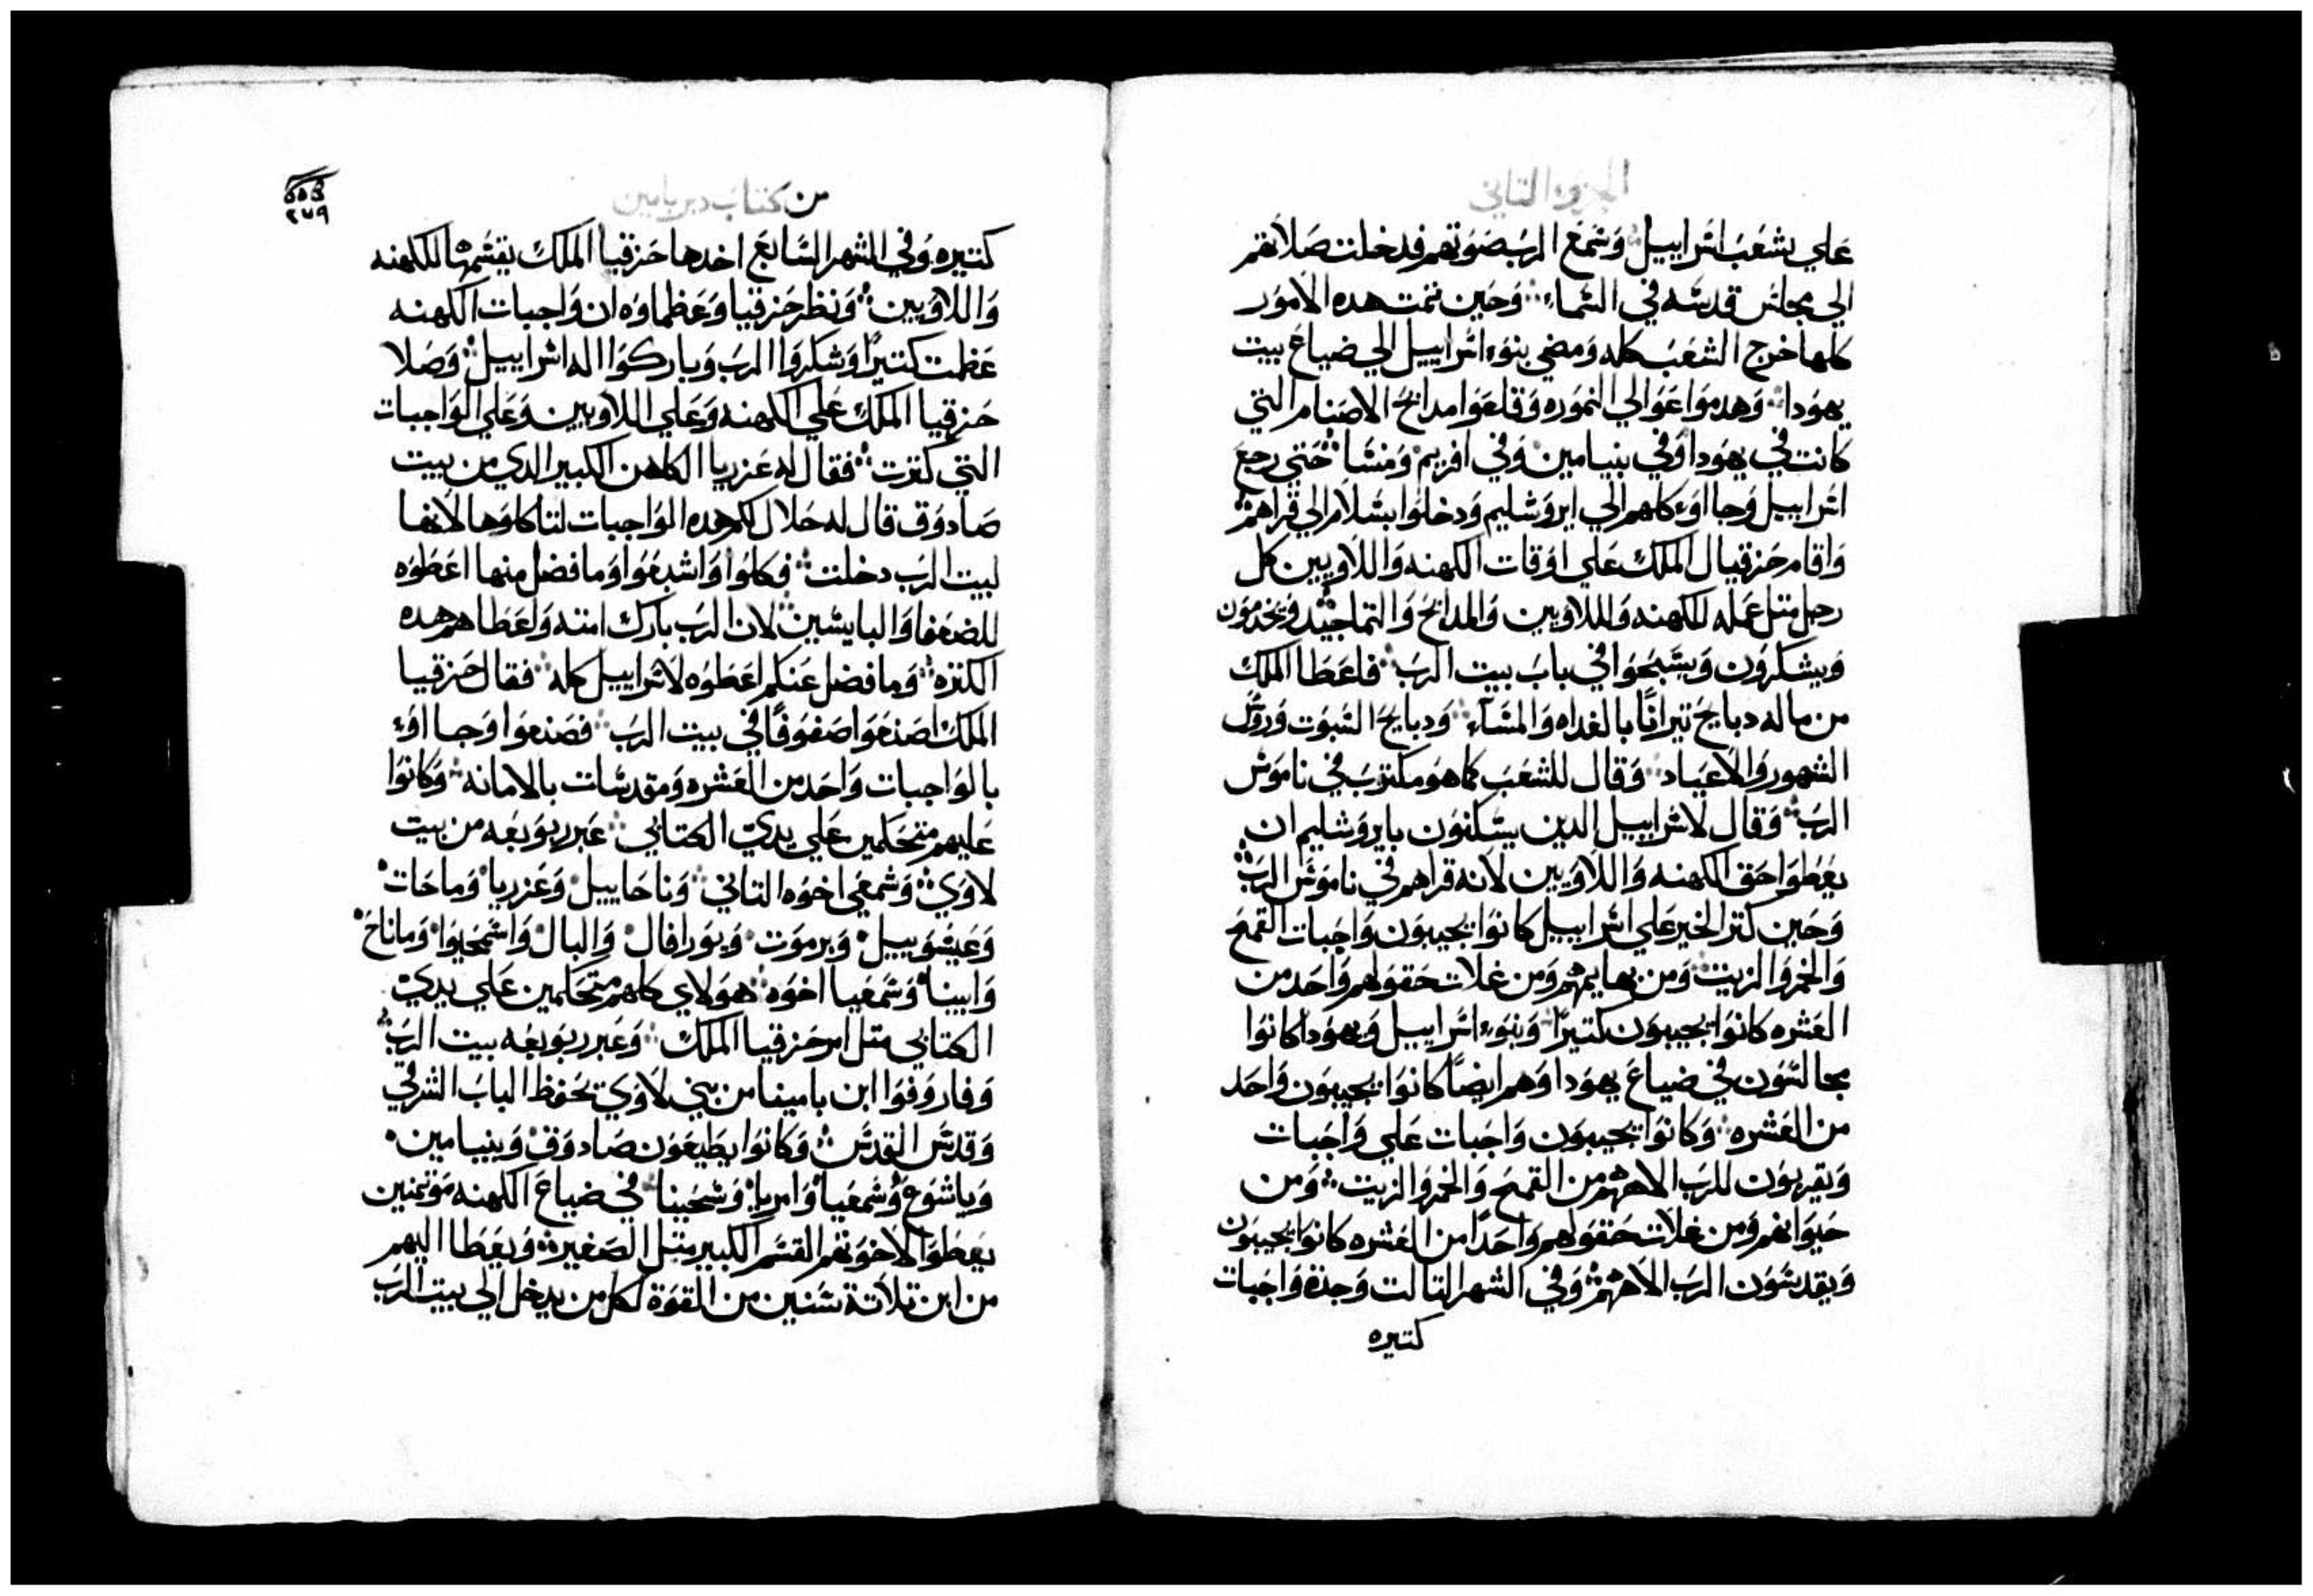 الجزو التاني
علي شعب اسراييل وسمع الرب صوتهم فدخلت صلاتهم
الي مجلس قدسه في السماء وحين تمت هده الامور
كلها خرج الشعب كله ومضي بنوء اسراييل الي ضياع بيت
يهودا وهدموا عوالي النموره وقلعوا مدابح الاصنام التي
كانت في يهودا وفي بنيامين وفي افريم ومنسا حتي رجع
اسراييل وجااوء كلهم الي ايروشليم ودخلوا بسلام الي قراهم
واقام حزقيال الملك علي اوقات الكهنه واللاويين كل
رجل متل عمله للكهنه وللاويين والمدابح والتماجيد ويخدمون
ويشكرون ويسبحوا في باب بيت الرب فاعطا الملك
من ماله دبايح تيرانًا بالغداه والمساء ودبايح السبوت وروس
الشهور والاعياد وقال للشعب كما هو مكتوب في ناموس
الرب وقال لاسراييل الدين يسكنون بايروشليم ان
يعطوا حق الكهنه واللاويين لانه قراهم في ناموس الرب
وحين كتر الخير علي اسراييل كانوا يجيبون واجبات القمح
والخمر والزيت ومن بهايمهم ومن غلات حقولهم واحد من
العشره كانوا يجيبون كتيرًا وبنوء اسراييل ويهودا كانوا
مجالسون في ضياع يهودا وهم ايضًا كانوا يجيبون واحد
من العشره وكانوا يجيبون واجبات علي واجبات
ويقربون للرب الاههم من القمح والخمر والزيت ومن
حيوانهم ومن غلات حقولهم واحدًا من العشره كانوا يجيبون
ويقدسون الرب الاههم وفي الشهر التالت وجدة واجبات
كتيره
من كتاب دبريامين
٢٧٩
كتيره وفي الشهر السابع اخدها حزقيا الملك يقسمها للكهنه
واللاويين ونظر حزقيا وعظماوه ان واجبات الكهنه
عظمت كتيرًا وشكروا الرب وباركوا اله اسراييل وصلا
حزقيا الملك علي الكهنه وعلي اللاويين وعلي الواجبات
التي كترت فقال له عزريا الكاهن الكبير الدي من بيت
صادوق قال له حلال لكم هده الواجبات لتاكلوها لانها
لبيت الرب دخلت فكلوا واشبعوا وما فضل منها اعطوه
للضعفا والبايسين لان الرب بارك امته واعطاهم هده
الكتره وما فضل عنكم اعطوه لاسراييل كله فقال حزقيا
الملك اصنعوا صفوفًا في بيت الرب فصنعوا وجااوء
بالواجبات واحد من العشره ومقدسات بالامانه وكانوا
عليهم متحكمين علي يدي الكتابي عبر ربويعه من بيت
لاوي وشمعي اخوه التاني وناحاييل وعزريا وماحات
وعيسوييل وبرموت ويورافال والبال واسمحيوا وماناح
وابينا وشمعيا اخوه هولاي كلهم متحكمين علي يدي
الكتابي متل امر حزقيا الملك وعبر ربويعه بيت الرب
وفاروفوا ابن بامينا من بني لاوي تحفظ الباب الشرقي
وقدس القدس وكانوا يطيعون صادوق وبنيامين
وياشوع وشمعيا وامريا وشحينا في ضياع الكهنه موتمنين
يعطوا لاخوتهم القسم الكبير متل الصغير ويعطا اليهم
من ابن تلاتة سنين من القوة لكل من يدخل الي بيت الرب